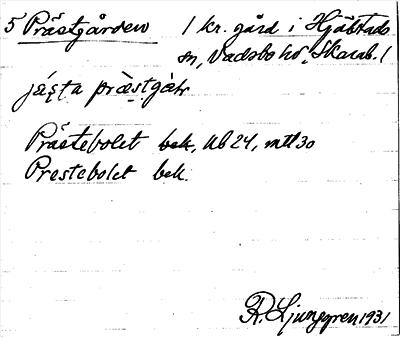 5 Prästgården / 1 kr. gård i Hjälstads
sn, Vadsbo hd, Skarab. /
Prästebolet bek, Ub 24, mtl 30
Prestebolet bek.
R. Ljunggren 1931